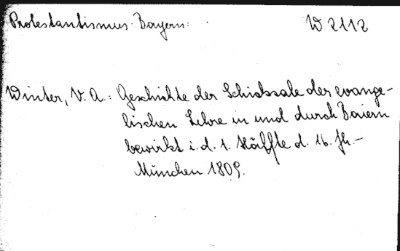 Protestantismus: Bayern: W 2112
Winter, V. A.: Geschichte der Schicksale der evange-
lischen Lehre in und durch Baiern
bewirkt i. d. 1. Hälffte d. 16. Jh.-
München 1809.